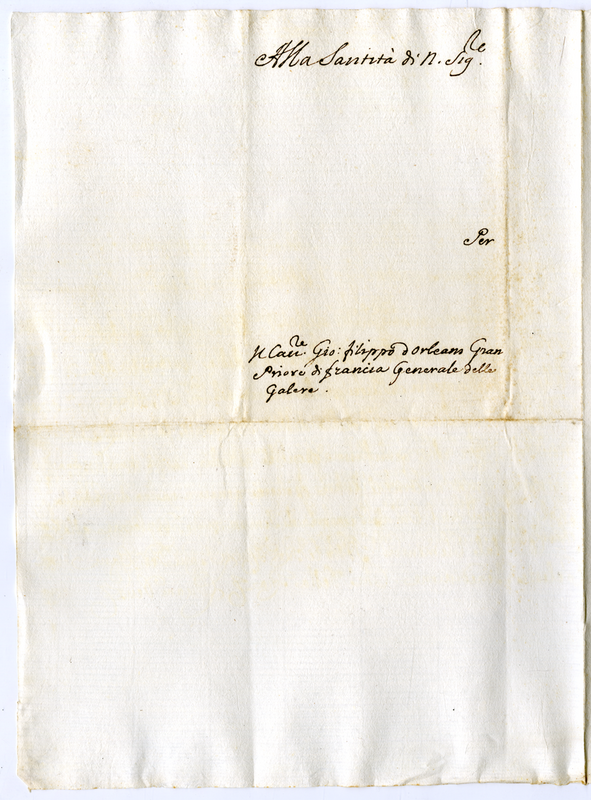 Alla Santità di N. Sig.re
Per
Il Cau.re Gio: filippo d'orleans Gran
Priore di francia Generale delle
Galere.